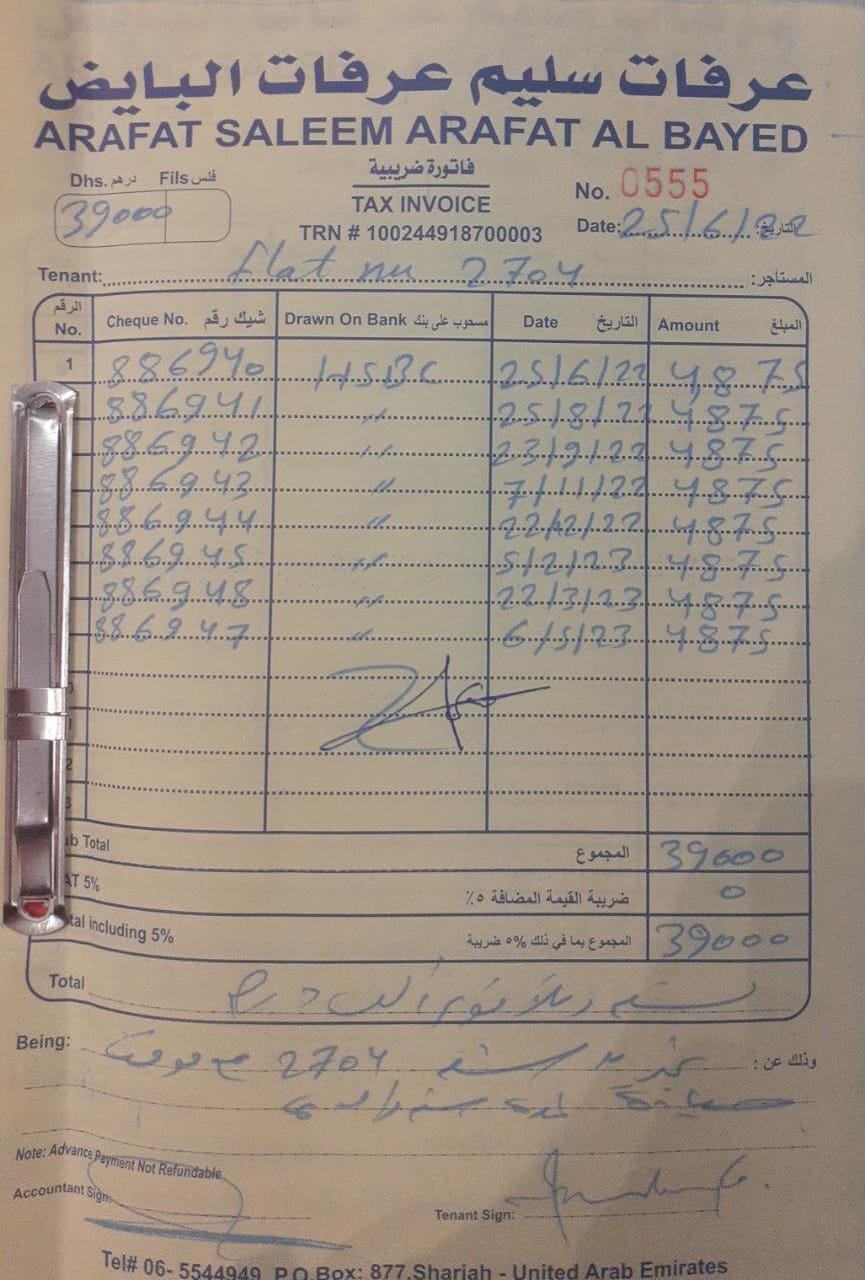 عرفات سليم عرفات البايض
ARAFAT SALEEM ARAFAT AL BAYED
Dhs. درهم Fils فلس
39000
فاتورة ضريبية
TAX INVOICE
TRN # 100244918700003
No. 0555
Date: 25/6/22 التاريخ:
Tenant: flat nu 2704 المستأجر:
الرقم No. Cheque No. شيك رقم Drawn On Bank مسحوب على بنك Date التاريخ Amount المبلغ
1 886940 HSBC 25/6/22 4875
886941 " 25/8/22 4875
886942 " 23/9/22 4875
886943 " 7/11/22 4875
886944 " 22/12/22 4875
886945 " 5/2/23 4875
886948 " 22/3/23 4875
886947 " 6/5/23 4875
0
1
2
3
b Total المجموع 39000
AT 5% ضريبة القيمة المضافة ٥٪ 0
tal including 5% المجموع بما في ذلك %٥ ضريبة 39000
Total
Being: 2704 وذلك عن:
Note: Advance Payment Not Refundable
Accountant Sign:
Tenant Sign:
Tel# 06- 5544949 P.O.Box: 877,Sharjah - United Arab Emirates